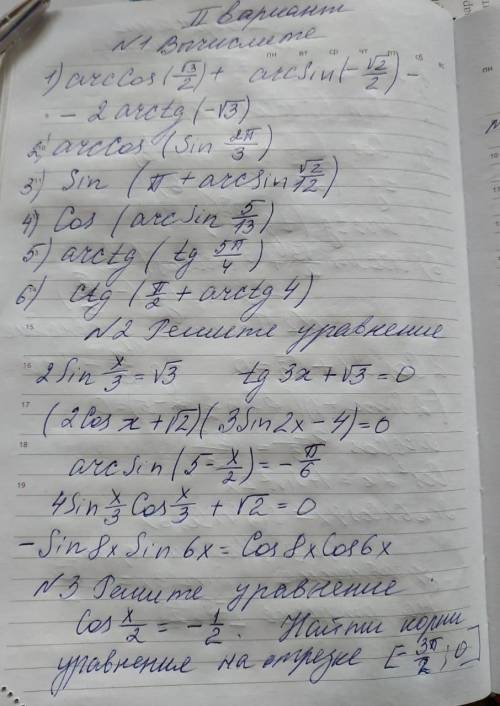 II Вариант
N1 Вычислите
1) arccos(√3/2) + arcsin(-√2/2) -
- 2 arctg(-√3)
2) arccos (sin 2π/3)
3) Sin (π + arcsin √2/12)
4) Cos (arcsin 5/13)
5) arctg ( tg 5π/4 )
6) ctg (π/2 + arctg 4)
N2 Решите уравнение
2Sin x/3 = √3 tg 3x + √3 = 0
(2Cos x + √2)(3Sin2x - 4) = 0
arcSin (5 - x/2) = - π/6
4Sin x/3 Cos x/3 + √2 = 0
- Sin 8x Sin 6x = Cos 8x Cos 6x
N3 Решите уравнение
Cos x/2 = - 1/2. Найти корни
уравнения на отрезке [-3π/2; 0]